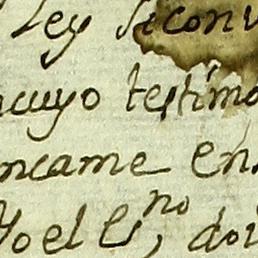 Ley siconv
ncuyo testimo
ncame en
Yo el Esno, doi